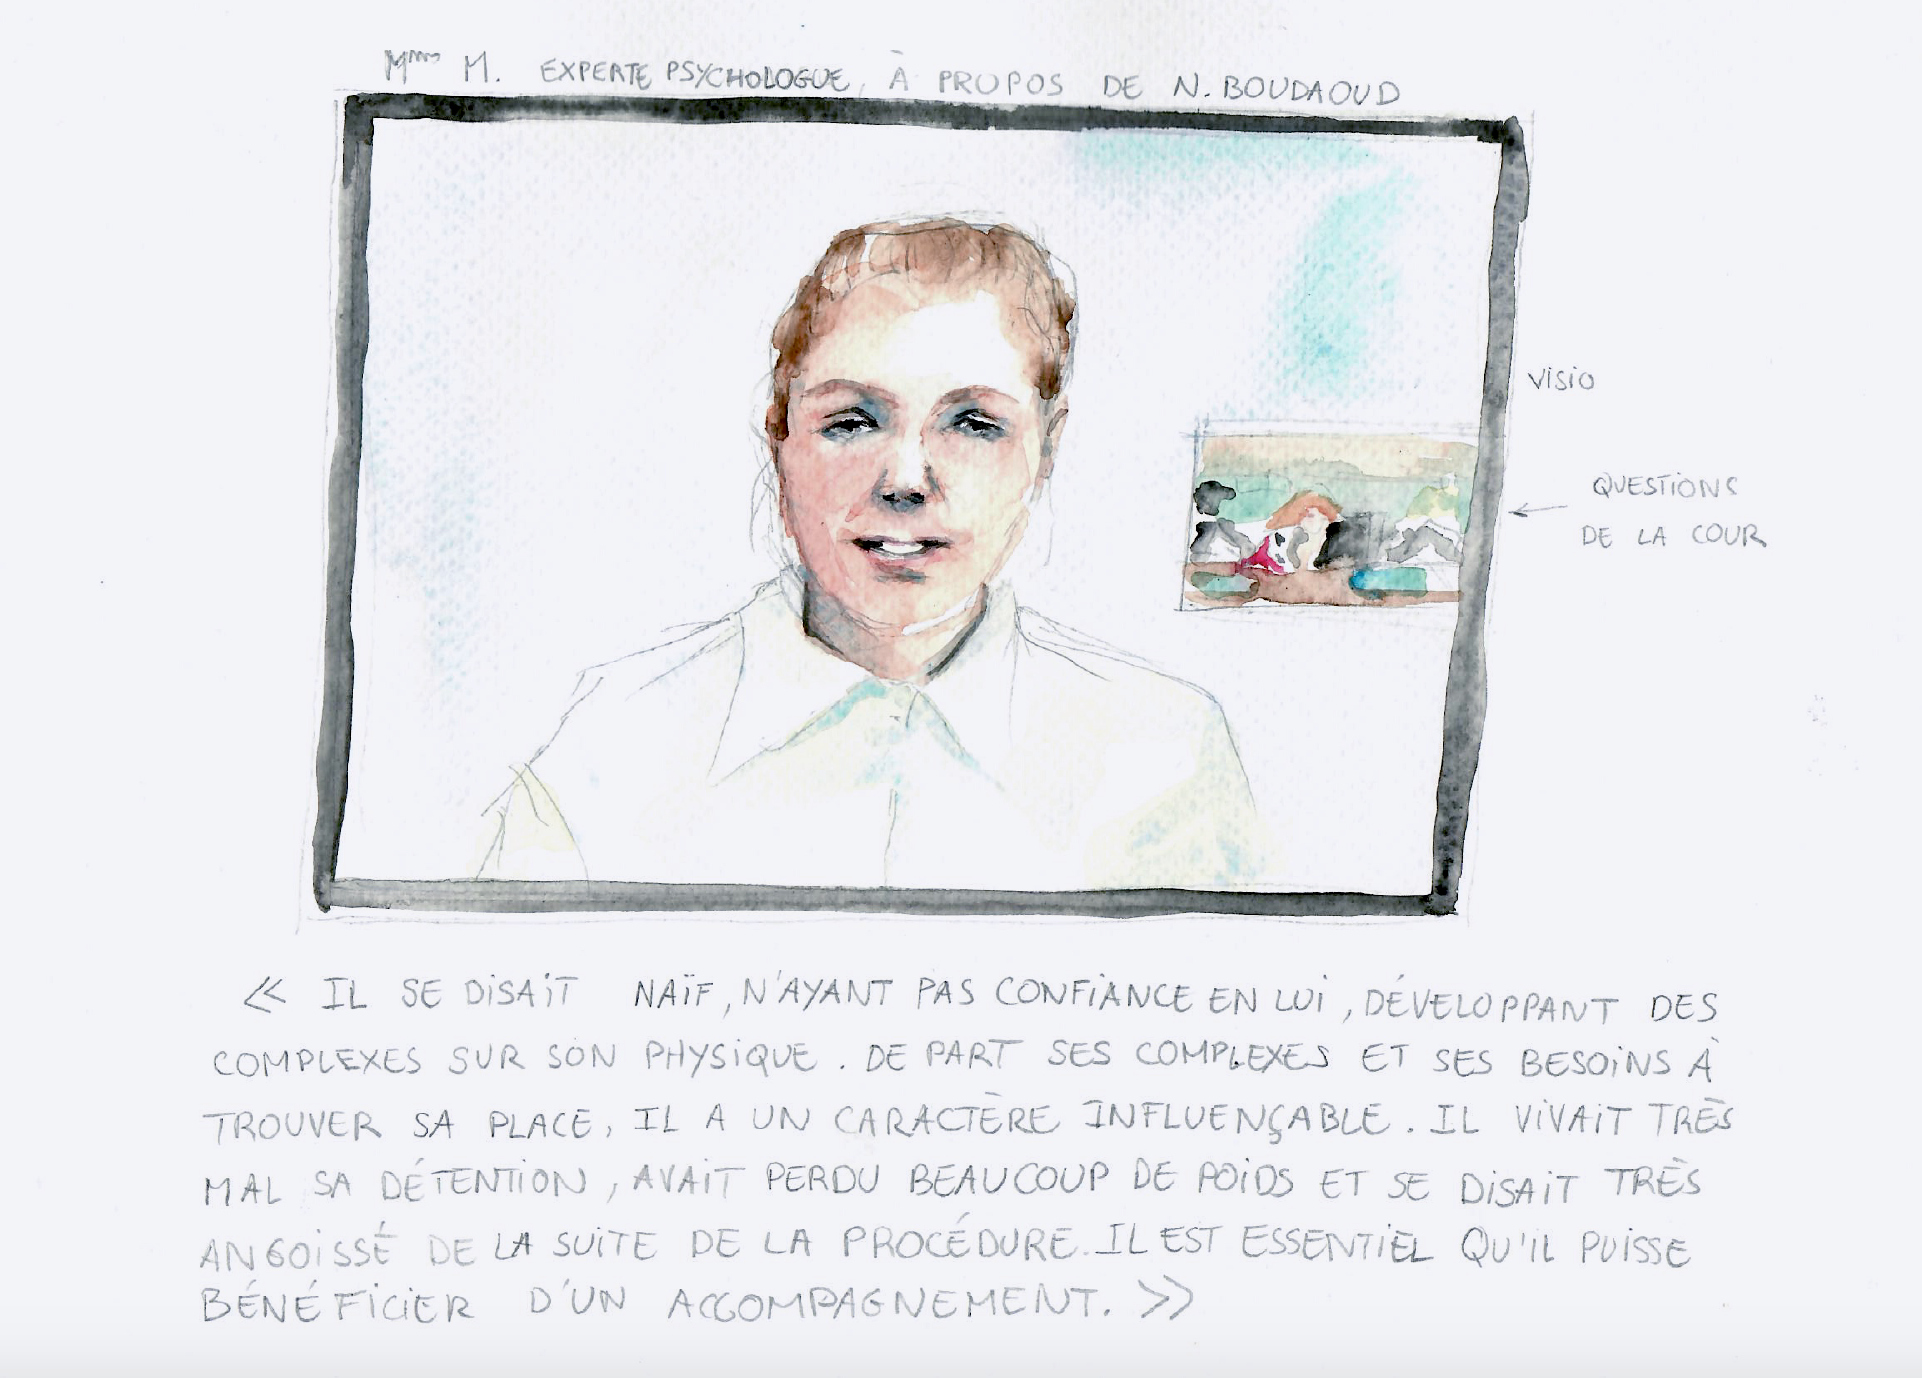 Mme M. EXPERTE PSYCHOLOGUE, À PROPOS DE N. BOUDAOUD
VISIO
QUESTIONS
DE LA COUR
« IL SE DISAIT NAÏF, N'AYANT PAS CONFIANCE EN LUI, DÉVELOPPANT DES
COMPLEXES SUR SON PHYSIQUE. DE PART SES COMPLEXES ET SES BESOINS À
TROUVER SA PLACE, IL A UN CARACTÈRE INFLUENÇABLE. IL VIVAIT TRÈS
MAL SA DÉTENTION, AVAIT PERDU BEAUCOUP DE POIDS ET SE DISAIT TRÈS
ANGOISSÉ DE LA SUITE DE LA PROCÉDURE. IL EST ESSENTIEL QU'IL PUISSE
BÉNÉFICIER D'UN ACCOMPAGNEMENT. »